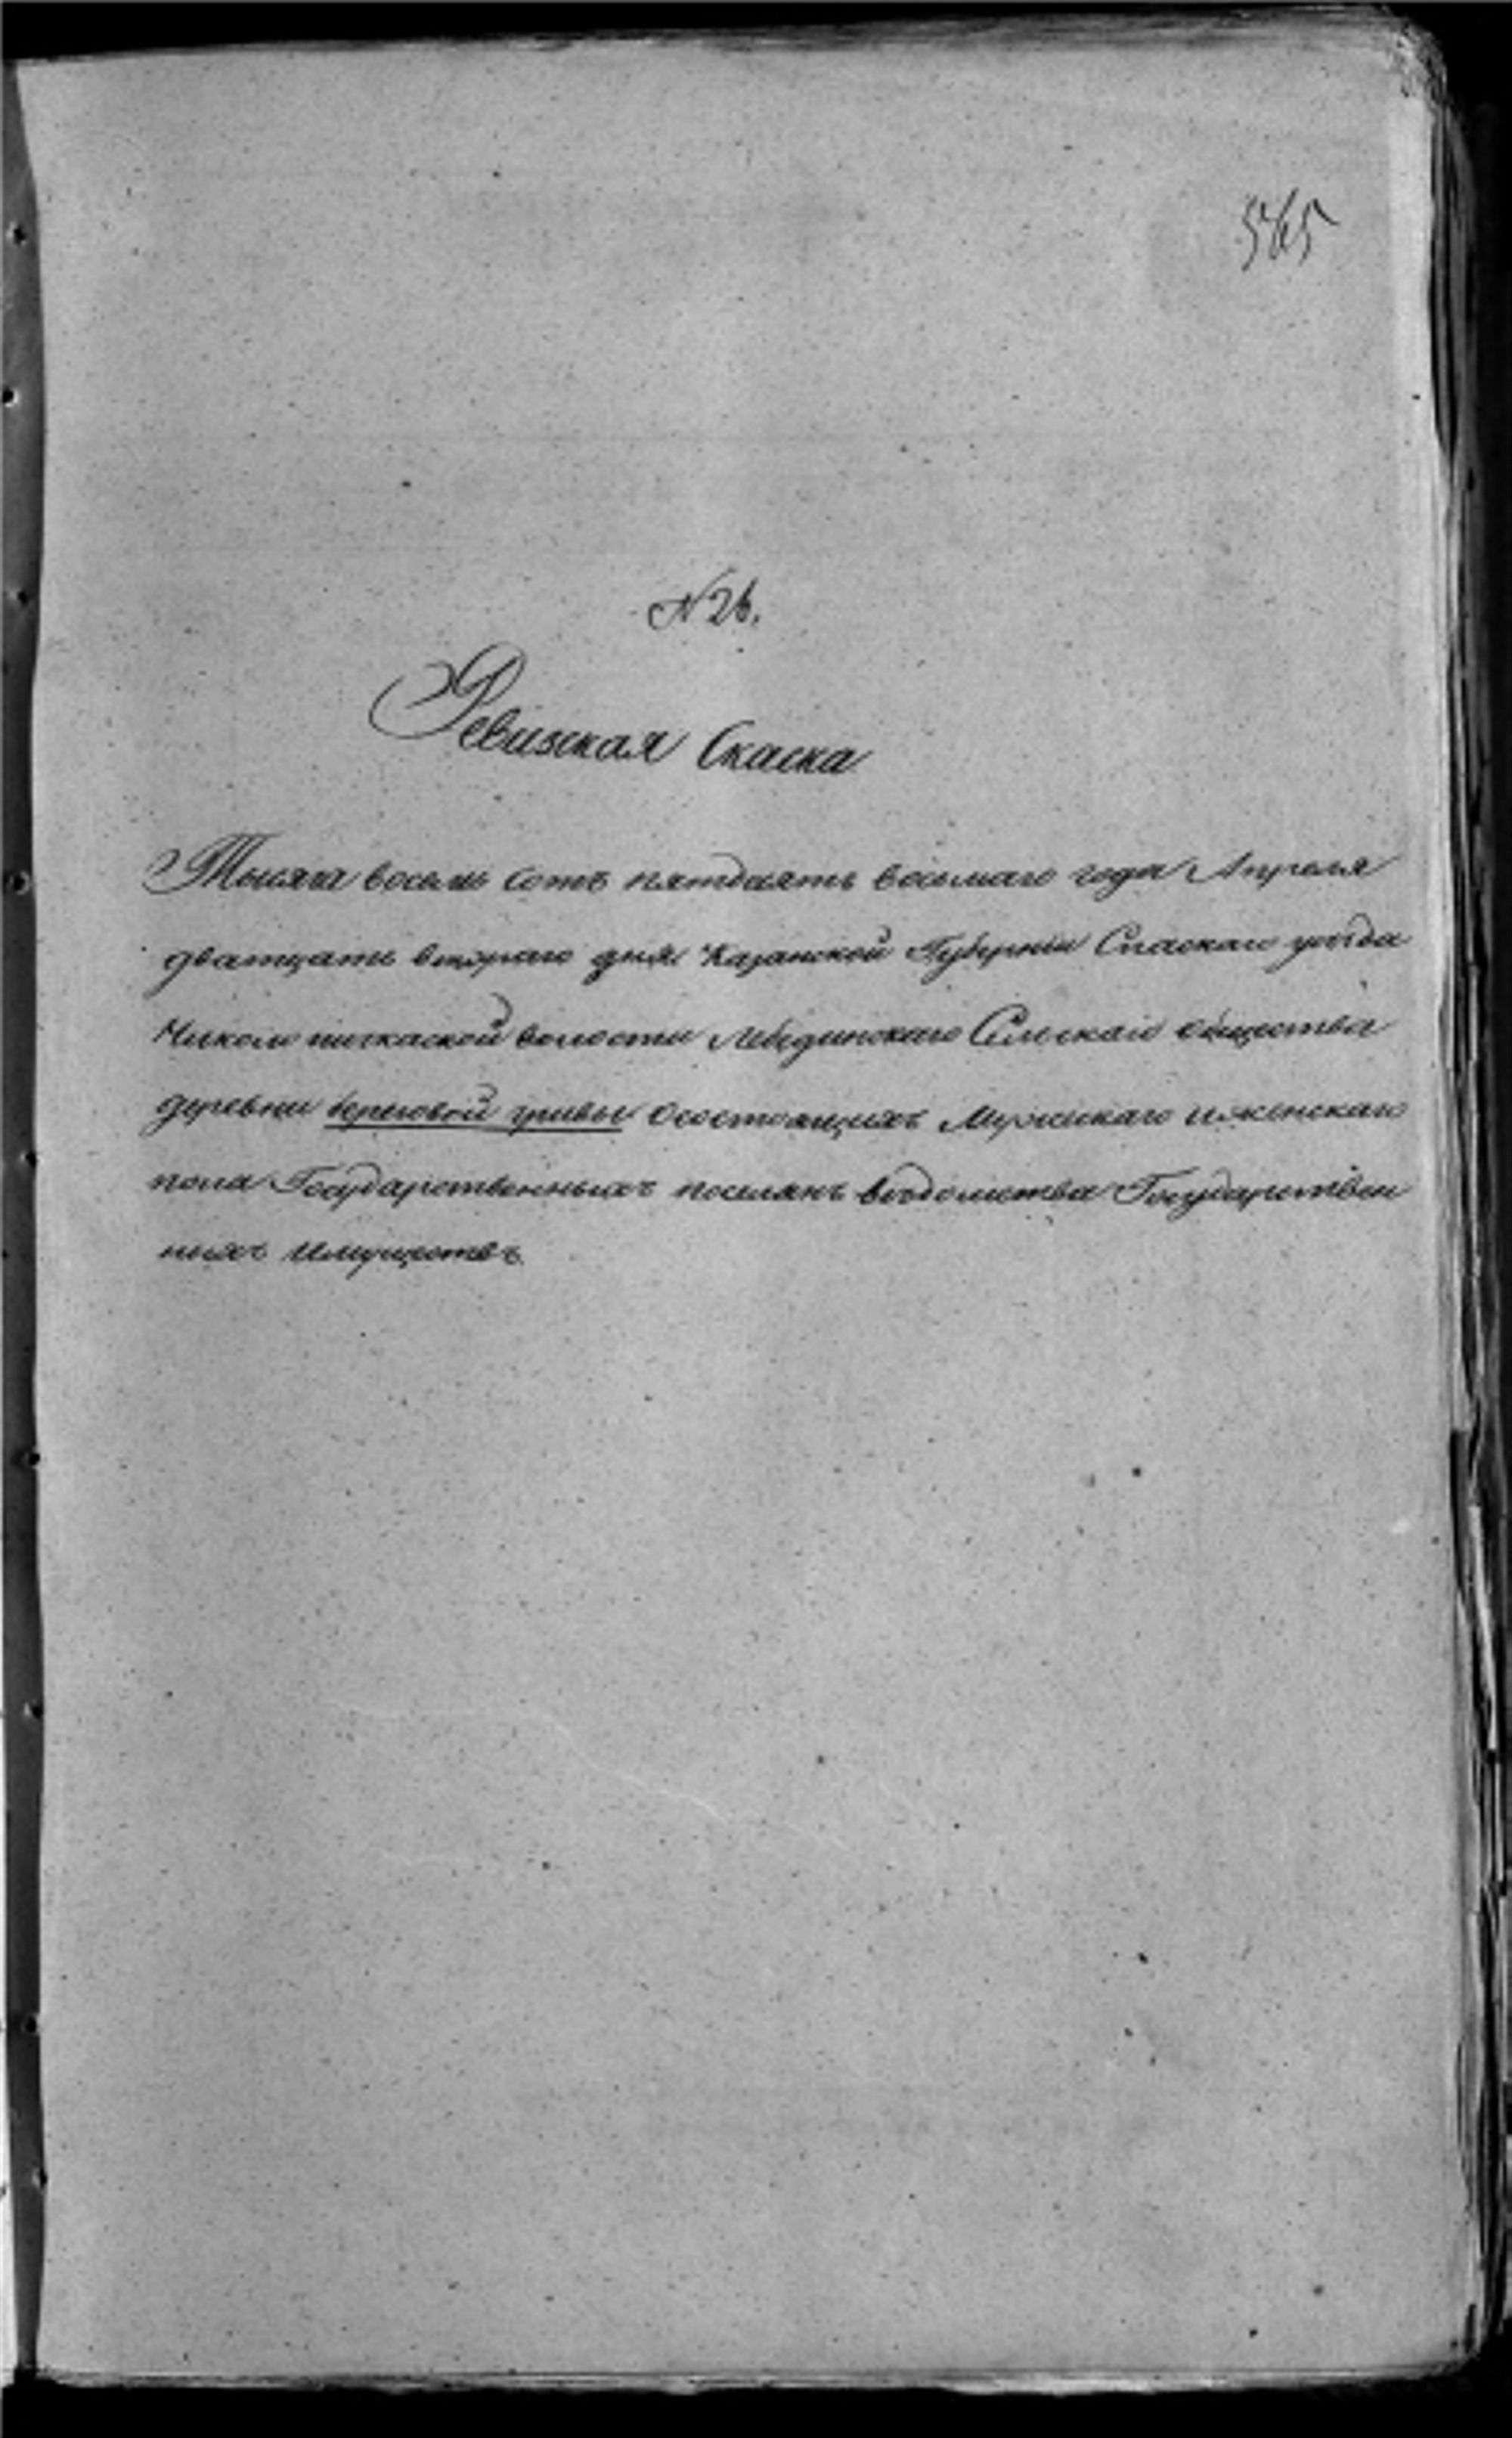 565
N 26.
Ревизская Скаска
Тысяча восемь сотъ пятдѣсятъ восьмаго года Апреля
дватцать втораго дня Казанской Губерніи Спаскаго уѣзда
волости Лебединскаго Сельскаго общества
деревни береговой гривы осостоящихъ Мужскаго иженскаго
пола Государственныхъ поселянъ вѣдомства Государствен
ныхъ Имуществъ.